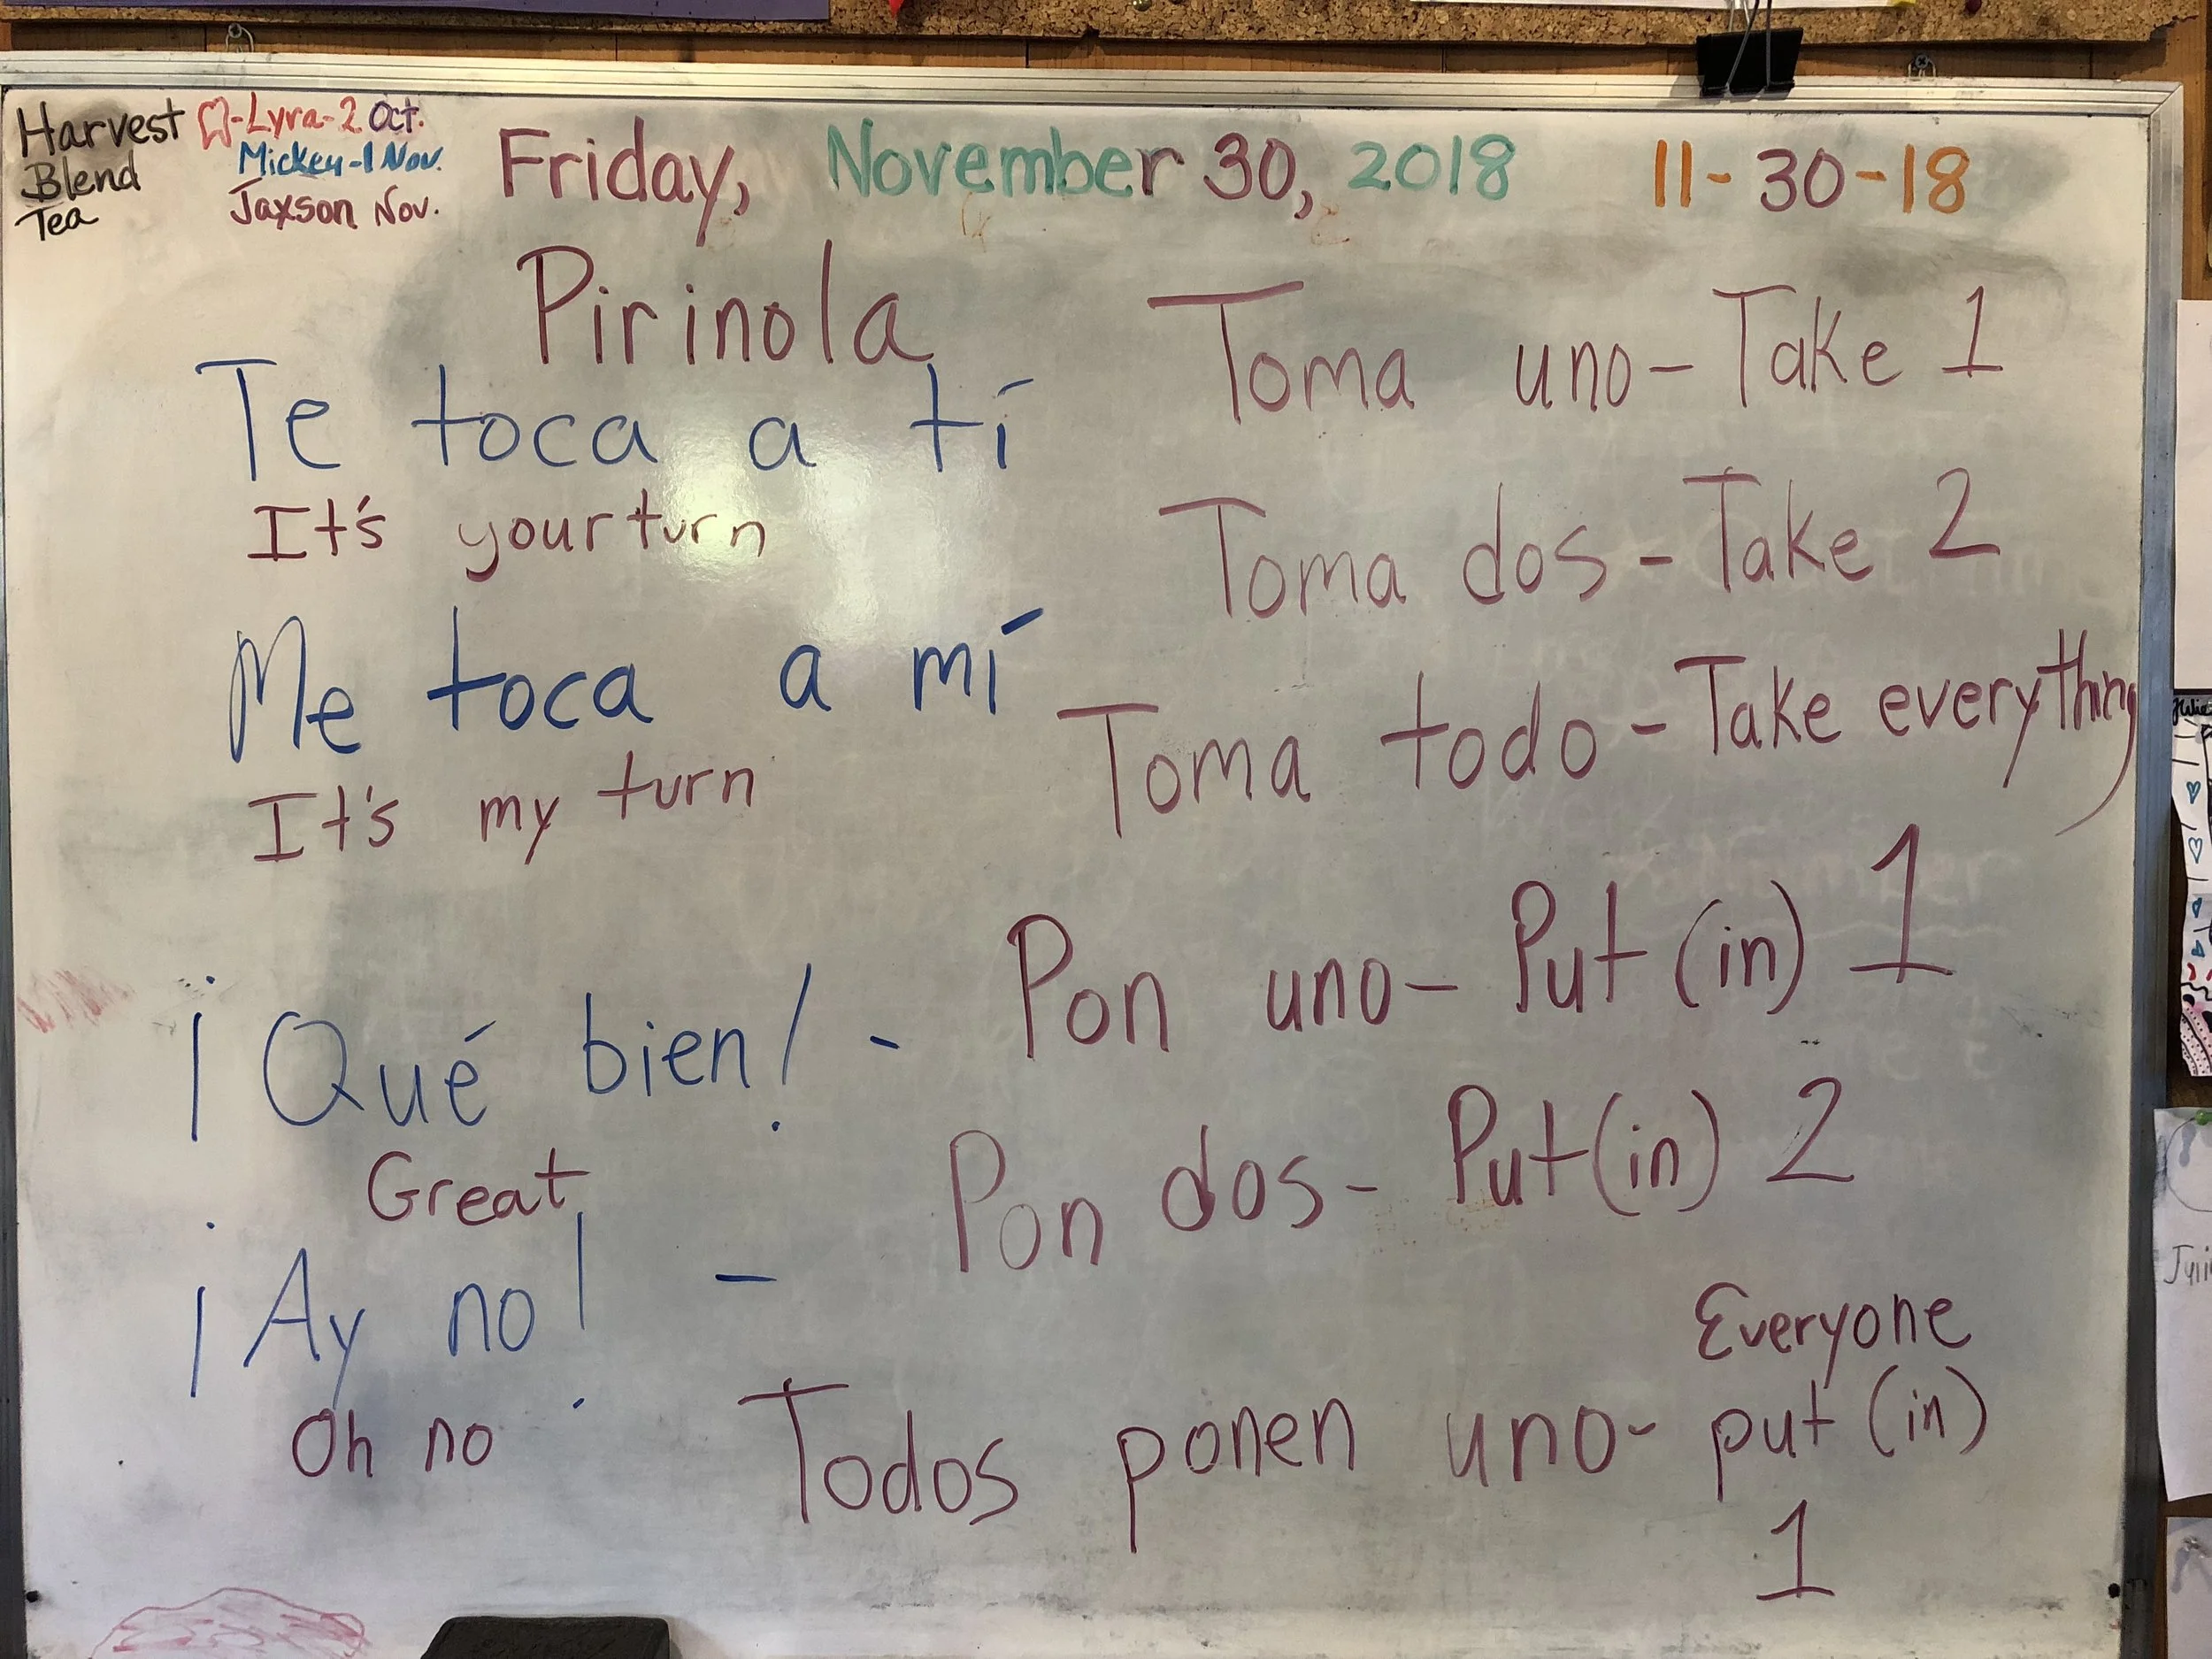 Harvest
Blend
Tea
-Lyra-2 Oct.
Mickey-1 Nov.
Jaxson Nov.
Friday, November 30, 2018 11-30-18
Pirinola
Te toca a tí
It's your turn
Me toca a mí
It's my turn
¡Qué bien! -
Great
¡Ay no! -
Oh no
Toma uno- Take 1
Toma dos - Take 2
Toma todo - Take everything
Pon uno- Put (in) 1
Pon dos- Put (in) 2
Todos ponen uno- Everyone
put (in)
1